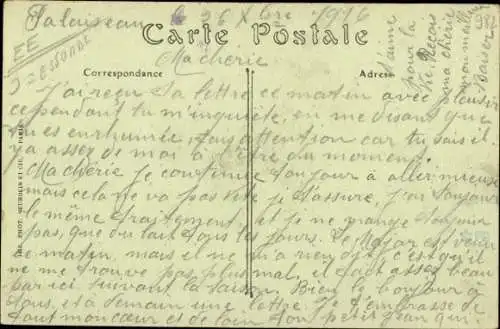 Palaiseau le 26 Xbre 1916
EE
ESSONNE
Carte Postale
Correspondance
Adresse
Ma chérie
J'ai reçu ta lettre ce matin avec plaisir
cependant tu m'inquiète, en me disant que
tu es enrhumée, fais attention car tu sais il
y a assez de moi à être du moment.
Ma chérie je continue toujours à aller mieux
mais cela ne va pas vite je t'assure, j'ai toujours
le même traitement, et je ne mange toujours
pas, que du lait tous les jours. Le Major est venu
ce matin, mais il ne m'a rien dit, c'est qu'il
ne me trouve pas plus mal, il fait assez beau
par ici suivant la saison. Bien le bonjour à
tous, et à demain une lettre. Je t'embrasse de
tout mon cœur et de loin ton petit Jean qui
t'aime
pour la
vie Reçois
ma chérie
mon meilleur
Baiser